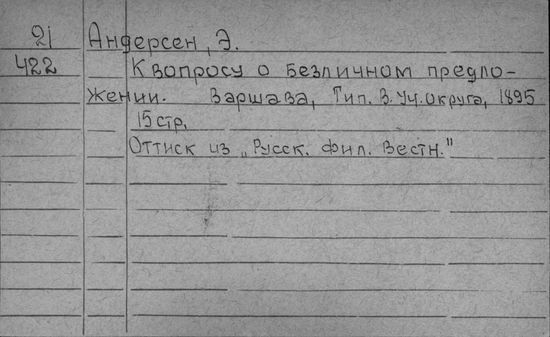 21 Андерсен, Э.
422 К вопросу о безличном предло-
жении. Варшава, Тип. В. Уч. округа, 1895
15 стр.
Оттиск из „Русск. фил. Вестн."